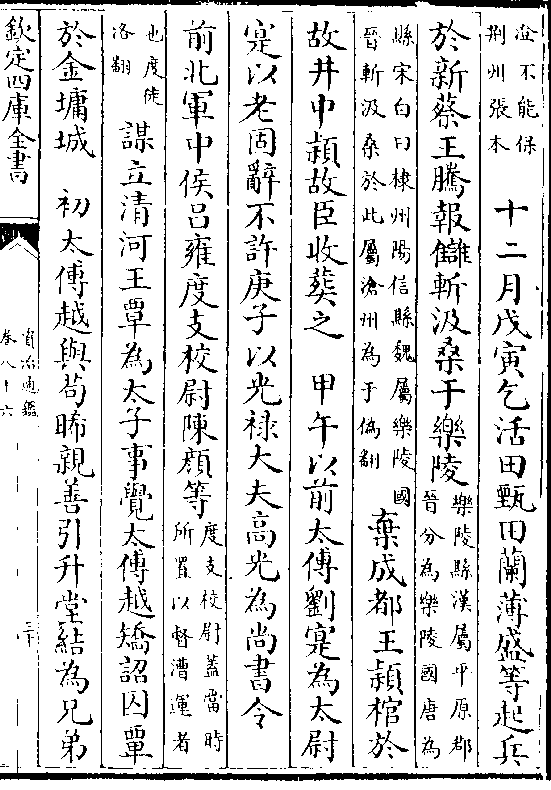 澄不能保
荆州張本
十二月戊寅乞活田甄田蘭薄盛等起兵
於新蔡王騰報讎斬汲桑于樂陵
樂陵縣漢屬平原郡
晉分為樂陵國唐為
縣宋白曰棣州陽信縣魏屬樂陵國
晉斬汲桑於此屬滄州為于偽翻
棄成都王頴棺於
故井中頴故臣收葬之　甲午以前太傅劉寔為太尉
寔以老固辭不許庚子以光禄大夫高光為尚書令
前北軍中侯吕雍度支校尉陳顔等
度支校尉蓋當時
所置以督漕運者
也度徒
洛翻
謀立清河王覃為太子事覺太傅越矯詔囚覃
於金墉城　初太傅越與苟晞親善引升堂結為兄弟
欽定四庫全書
資治通鑑
卷八十六